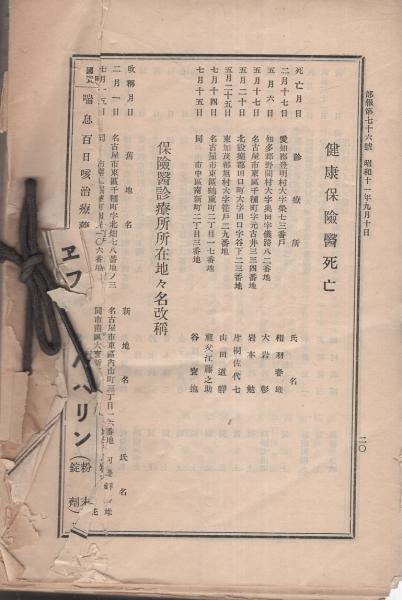 部報第七十六號 昭和十一年九月十日
二〇
健康保險醫死亡
死亡月日 診療所 氏名
二月十七日 愛知郡豊明村大字榮七三番戸 相羽春
五月六日 知多郡野間村大字奥田字儀路八二番地 大岩彰
五月十七日 名古屋市東區千種町字元古井三三四番地 岩本勉
五月二十日 北設樂郡田口町大字田口字谷下二三番地 片桐佐代七
五月二十五日 東加茂郡旭村大字笹戸二九番地 山田道
七月十四日 名古屋市東區鶴重町二丁目三一番地 江藤之助
七月十五日 同 市中區南新町二丁目三七番地 谷寶
保險醫診療所所在地々名改稱
改稱月日 舊地名 新地名 氏名
二月一日 名古屋市東區千種町字北畑七八番地ノ三 名古屋市東區内山町三丁目一六番地
七月一五日 同 〇六番地 同市南區大寶
喘息百日咳治療
ヱフ リン
(粉末 錠劑)